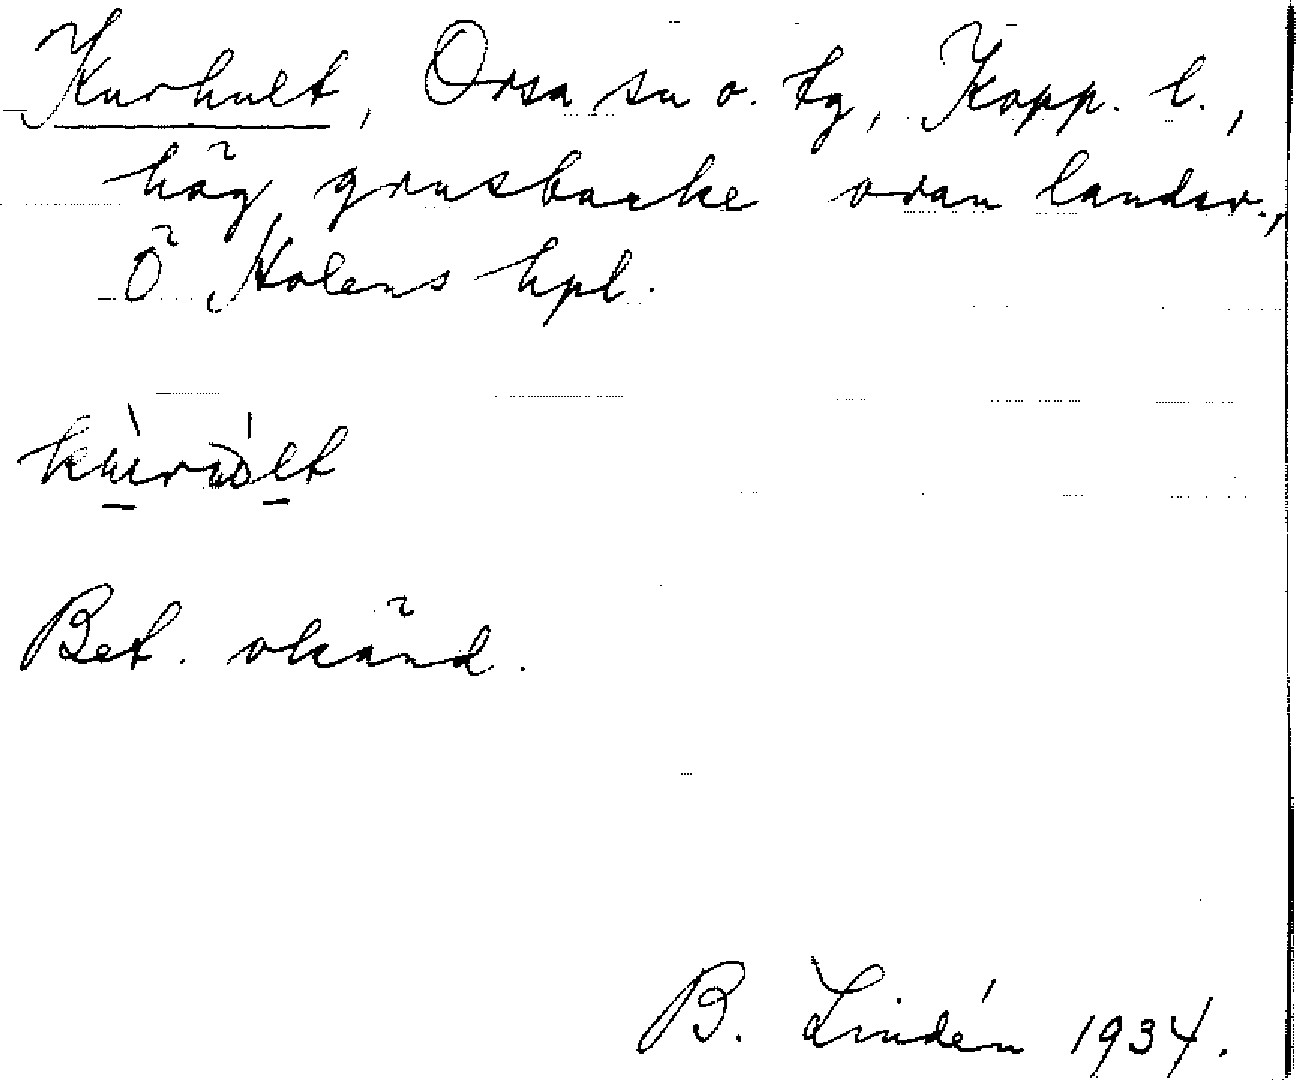 Kurhult, Orsa sn o. tg, Kopp. l.,
hög grusbacke ovan landsv.,
Ö Holens hpl.
Bet. okänd.
B. Lindén 1934.